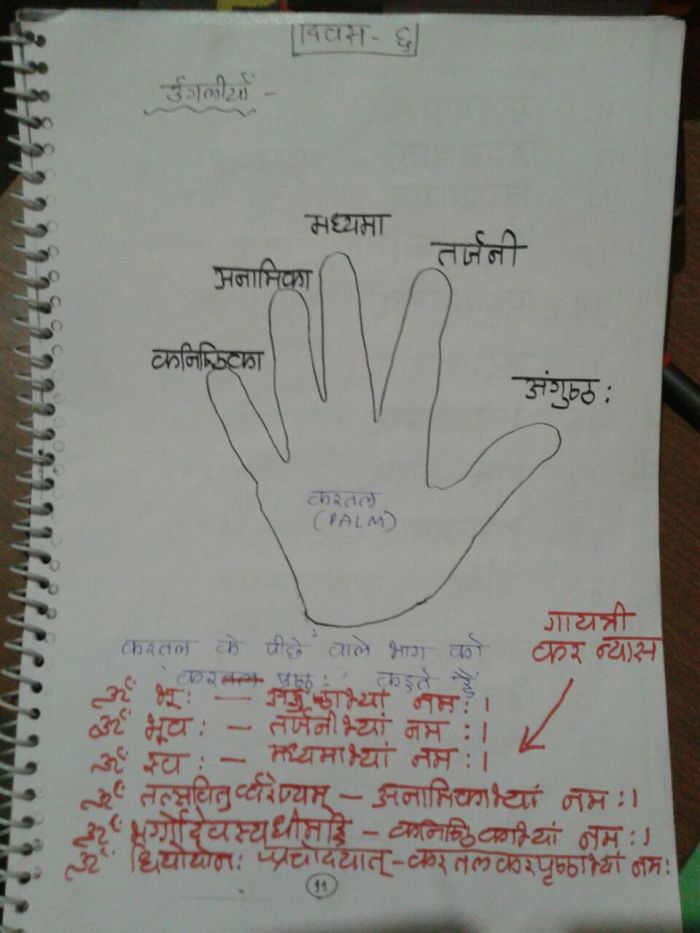 दिवस - ६
उंगलीयाँ -
मध्यमा
तर्जनी
अनामिका
कनिष्ठिका
अंगुष्ठ :
करतल
(PALM)
गायत्री
कर न्यास
करतल के पीछे वाले भाग को
'कर पृष्ठः' कहते हैं
ॐ भूः — अंगुष्ठाभ्यां नमः ।
ॐ भूवः — तर्जनीभ्यां नमः ।
ॐ स्वः — मध्यमाभ्यां नमः ।
ॐ तत्सवितुर्व्वरेण्यम् — अनामिकाभ्यां नमः ।
ॐ भर्गोदेवस्यधीमहि — कनिष्ठिकाभ्यां नमः ।
ॐ धियोयोनः प्रचोदयात् - करतलकरपृष्ठाभ्यां नमः
11